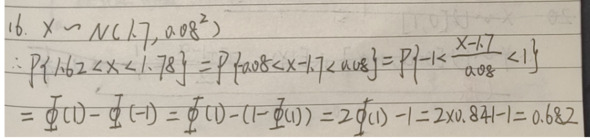 16. X ~ N(1.7, 0.08²)
∴ P{1.62 < x < 1.78} = P{-0.08 < x-1.7 < 0.08} = P{-1 < (x-1.7)/0.08 < 1}
= Φ(1) - Φ(-1) = Φ(1) - (1-Φ(1)) = 2Φ(1) - 1 = 2×0.841-1 = 0.682